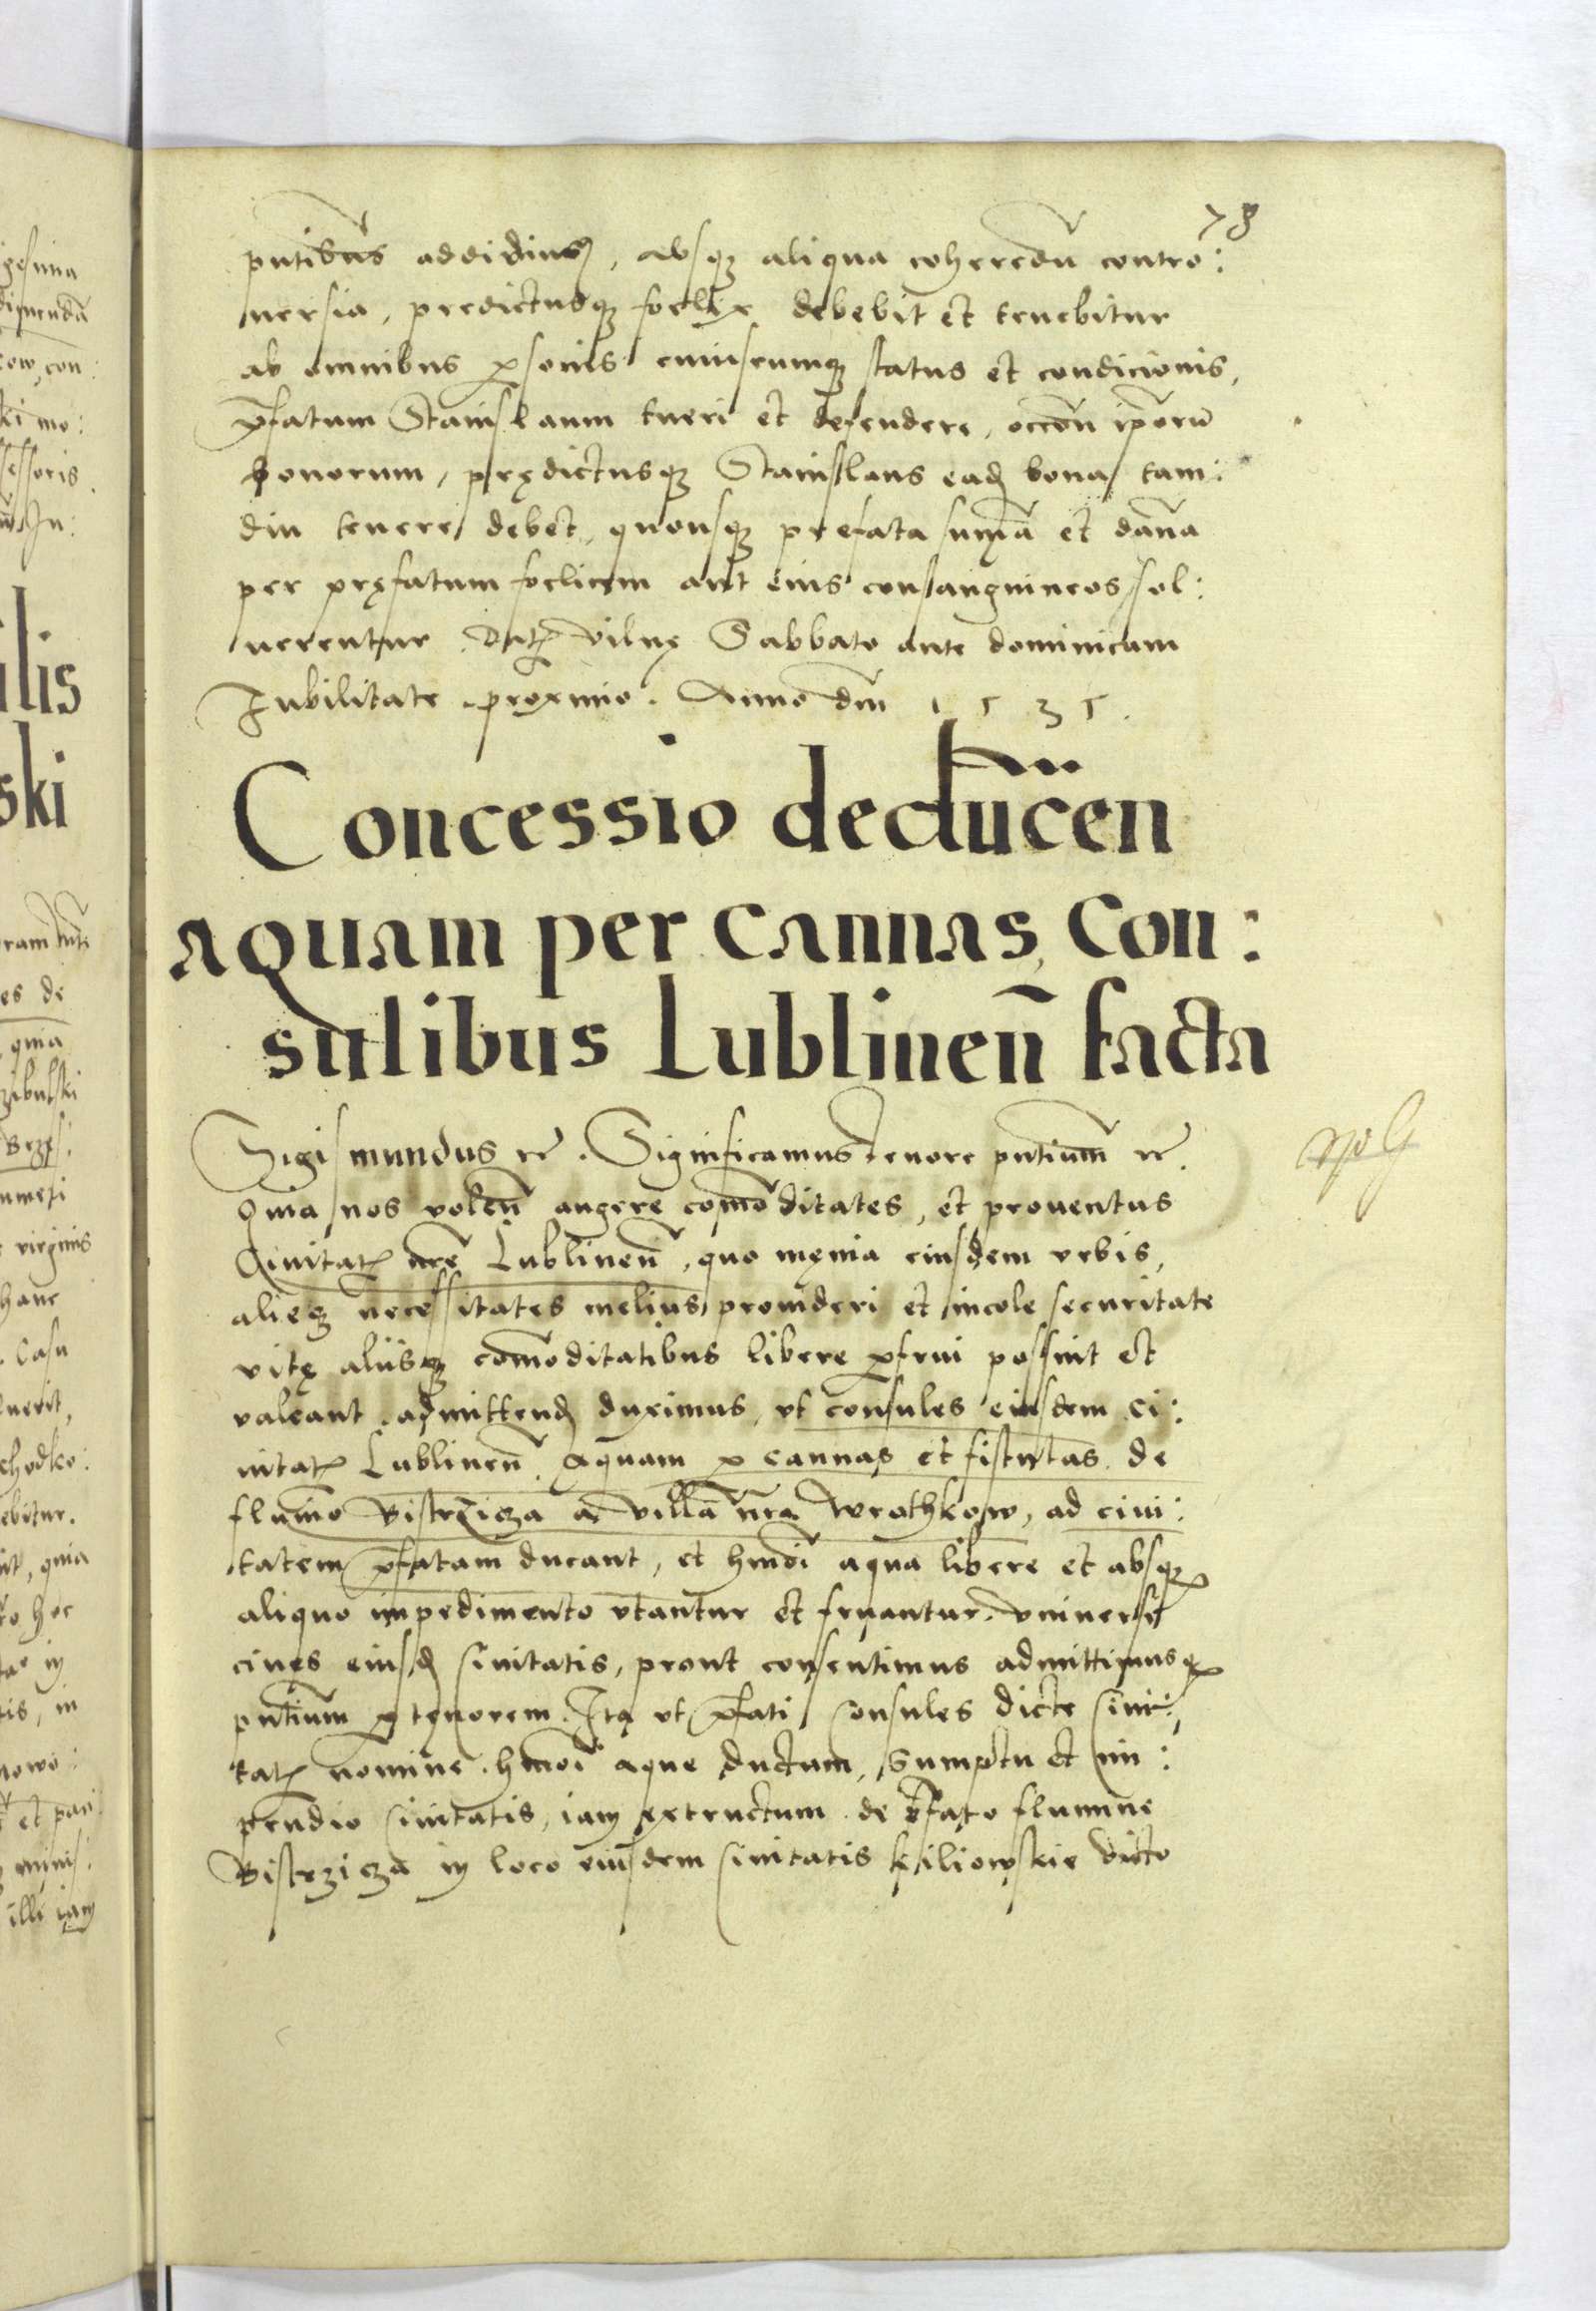 78
pntibus addidimus, absq aliqua coheredũ contro:
uersia, predictusq foelix debebit et tenebitur
ab omnibus psonis cuiuscumq status et condicionis,
p̃fatum Stanislaum tueri et defendere, occõn ip̃orũ
bonorum, prędictusq Stanislaus eadȩ bona tam:
diu tenere debet, quousq prefata sum̃a et dãna
per pręfatum foelicem aut eius consanguineos sol:
uerentur. Datȩ vilnę Sabbato ante dominicam
Iubilitate proximo. Anno dñi 1535.
Concessio deducen̄
aquam per cannas, Con:
sulibus Lublinen̄ facta
Sigismundus rc̃. Significamus tenore pntium̃ rc̃.
Quia nos volen̄ augere com̃oditates, et prouentus
Ciuitatȩ nrẽ Lublinen̄, quo męnia eiusdem vrbis,
alieq necessitates melius prouideri et incole securitate
vitę aliisq com̃oditatibus libere pfrui possint et
valeant, admittendȩ duximus, vt consules eiusdem ci:
uitatȩ Lublinen̄. Aquam p cannas et fistulas de
flumĩo Bistrzicza a villa nr̃a Wrothkow, ad ciui:
tatem p̃fatam ducant, et hm̃oi aqua libere et absq
aliquo impedimento vtantur et fruantur vniuersi
ciues eiusdȩ ciuitatis, prout consentimus admittimusq
pntium̃ p tenorem. Ita vt p̃fati consules dicte ciui:
tatȩ nomine hm̃oi aque ductum, sumptu et im:
pendio ciuitatis, iam extructum de p̃fato flumine
Bistrzicza in loco eiusdem ciuitatis kiliowskie dicto